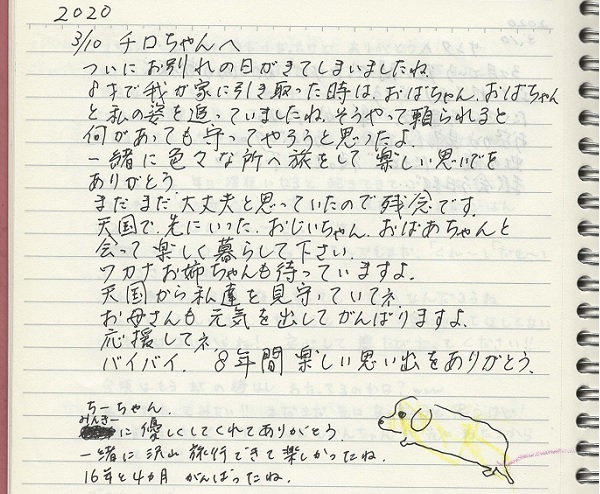 2020
3/10 チロちゃんへ
ついにお別れの日がきてしまいましたね。
8才で我が家に引き取った時は、おばちゃん、おばちゃん
と私の姿を追っていましたね。そうやって頼られると
何があっても守ってやろうと思ったよ。
一緒に色々な所へ旅をして楽しい思いでを
ありがとう
まだまだ大丈夫と思っていたので残念です。
天国で、先にいった、おじいちゃん、おばあちゃんと
会って楽しく暮らして下さい。
ワカナお姉ちゃんも待っていますよ。
天国から私達を見守っていてネ。
お母さんも元気を出してがんばりますよ。
応援してネ
バイバイ、8年間楽しい思い出をありがとう。
ちーちゃん、
みんきー
に優しくしてくれてありがとう。
一緒に沢山旅行できて楽しかったね。
16年と4カ月 がんばったね。